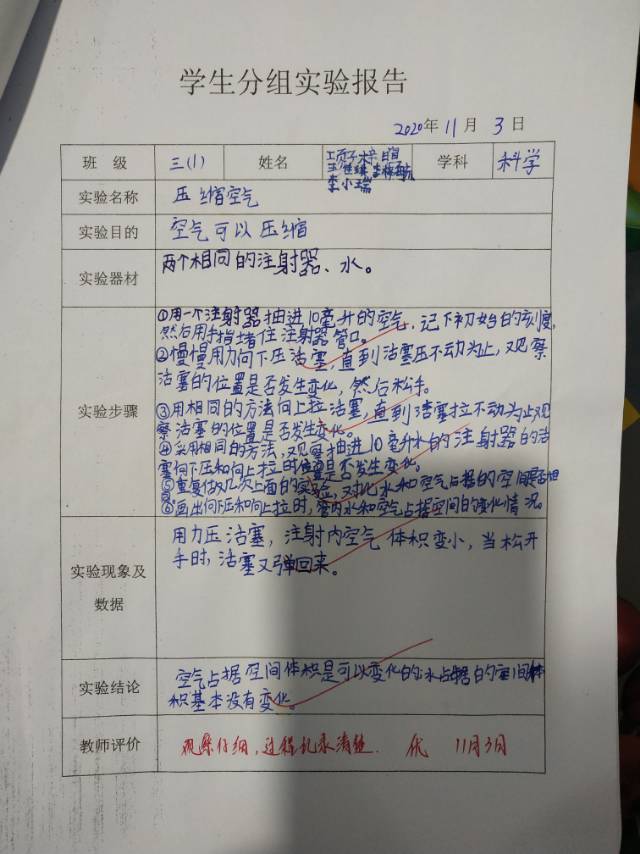 学生分组实验报告
2020年 11月 3日
班 级 三(1) 姓名 学科 科学
李小瑞
实验名称 压缩空气
实验目的 空气可以压缩
实验器材 两个相同的注射器、水。
实验步骤
①用一个注射器抽进10毫升的空气,记下初始的刻度,
然后用手指堵住注射器管口。
②慢慢用力向下压活塞,直到活塞压不动为止,观察
活塞的位置是否发生变化,然后松手。
③用相同的方法向上拉活塞,直到活塞拉不动为止观
察活塞的位置是否发生变化。
④采用相同的方法,观察抽进10毫升水的注射器的活
塞向下压和向上拉时位置是否发生变化。
⑤重复做几次上面的实验,对比水和空气占据的空间
⑥画出向下压和向上拉时,管内水和空气占据空间的变化情况。
实验现象及
数据
用力压活塞,注射内空气体积变小,当松开
手时,活塞又弹回来。
实验结论
空气占据空间体积是可以变化的水占据的空间体
积基本没有变化。
教师评价 观察仔细,过程记录清楚. 优 11月3日